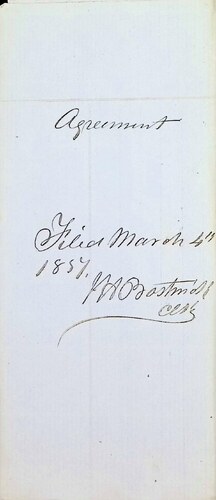 Agreement
Filed March 4th
1857.
Clk